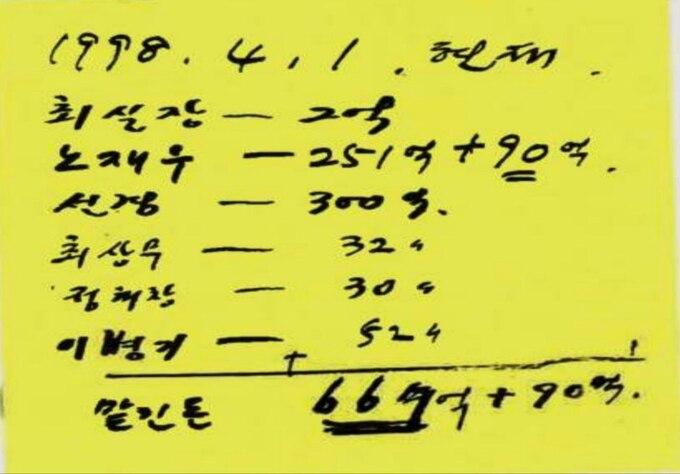 1998. 4. 1. 현재.
최실장 — 2억
노재우 — 251억 + 90억.
선경 — 300억.
최상무 — 32 〃
정해창 — 30 〃
이병기 — 52 〃
맡긴돈 667억 + 90억.